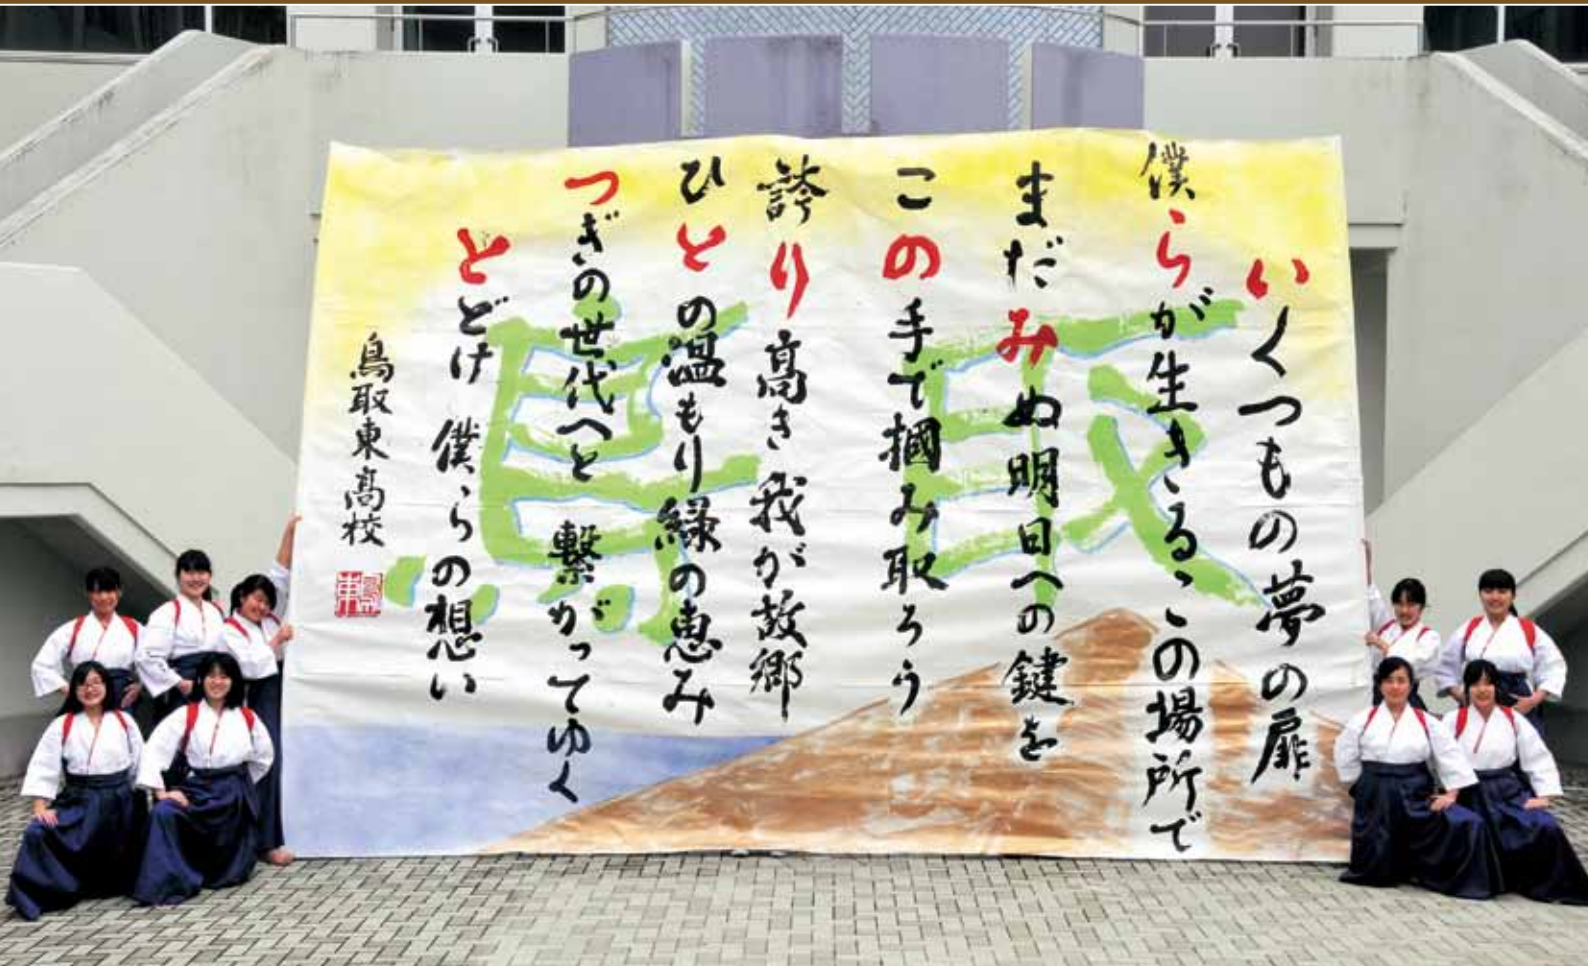 鳥取
いくつもの夢の扉
僕らが生きるこの場所で
まだみぬ明日への鍵を
この手で掴み取ろう
誇り高き 我が故郷
ひとの温もり緑の恵み
つぎの世代へと 繋がってゆく
とどけ 僕らの想い
鳥取東高校